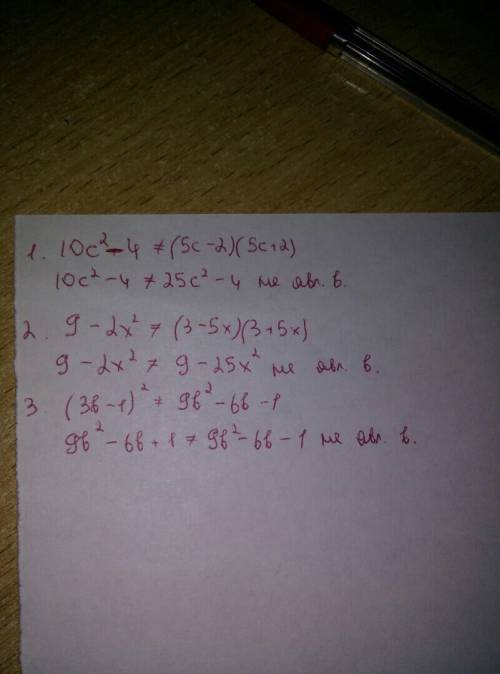 1. 10c² - 4 ≠ (5c-2)(5c+2)
10c² - 4 ≠ 25c² - 4 не явл. в.
2. 9 - 2x² ≠ (3-5x)(3+5x)
9 - 2x² ≠ 9 - 25x² не явл. в.
3. (3b-1)² ≠ 9b² - 6b - 1
9b² - 6b + 1 ≠ 9b² - 6b - 1 не явл. в.